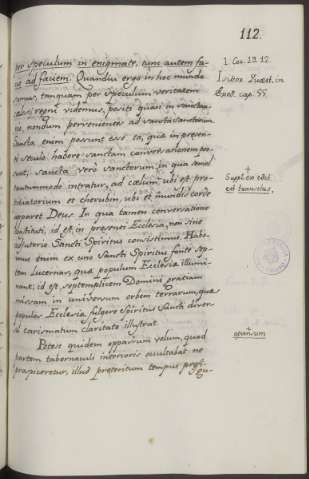 112.
per speculum in enigmate, tunc autem fa-
cie ad faciem. Quandiu ergo in hoc mundo
sumus, tanquam per speculum veritatem
regni videmus, positi quasi in sanctua-
rio, nondum pervenientes ad sancta sanctorum.
Sancta enim possunt esse ea, quæ in præsen-
ti sæculo habere sanctam conversationem pos-
sunt, sancta vero sanctorum, in qua semel
tantummodo intratur, ad cœlum, ubi est pro-
pitiatorium et cherubim, ubi et mundis corde
apparet Deus. In qua tamen conversatione
sanctitati, id est, in præsenti Ecclesia, non sine
adjutorio Sancti Spiritus consistimus. Habe-
mus enim ex uno Sancti Spiritus fonte sep-
tem lucernas, quæ populum Ecclesiæ illumi-
nant; id est, septemplicem Domini gratiam
missam in universum orbem terrarum, quæ
populos Ecclesiæ fulgore Spiritus Sancti diver-
sa carismatum claritate illustrat.
Potest quidem oppansum velum, quod
partem tabernaculi interioris occultabat ne
prospiceretur, illud præteritum tempus prefi-
gu-
I. Cor. 13. 12.
Isidor. Quæst. in
Exod. cap. 55.
Suppl. ex edit.